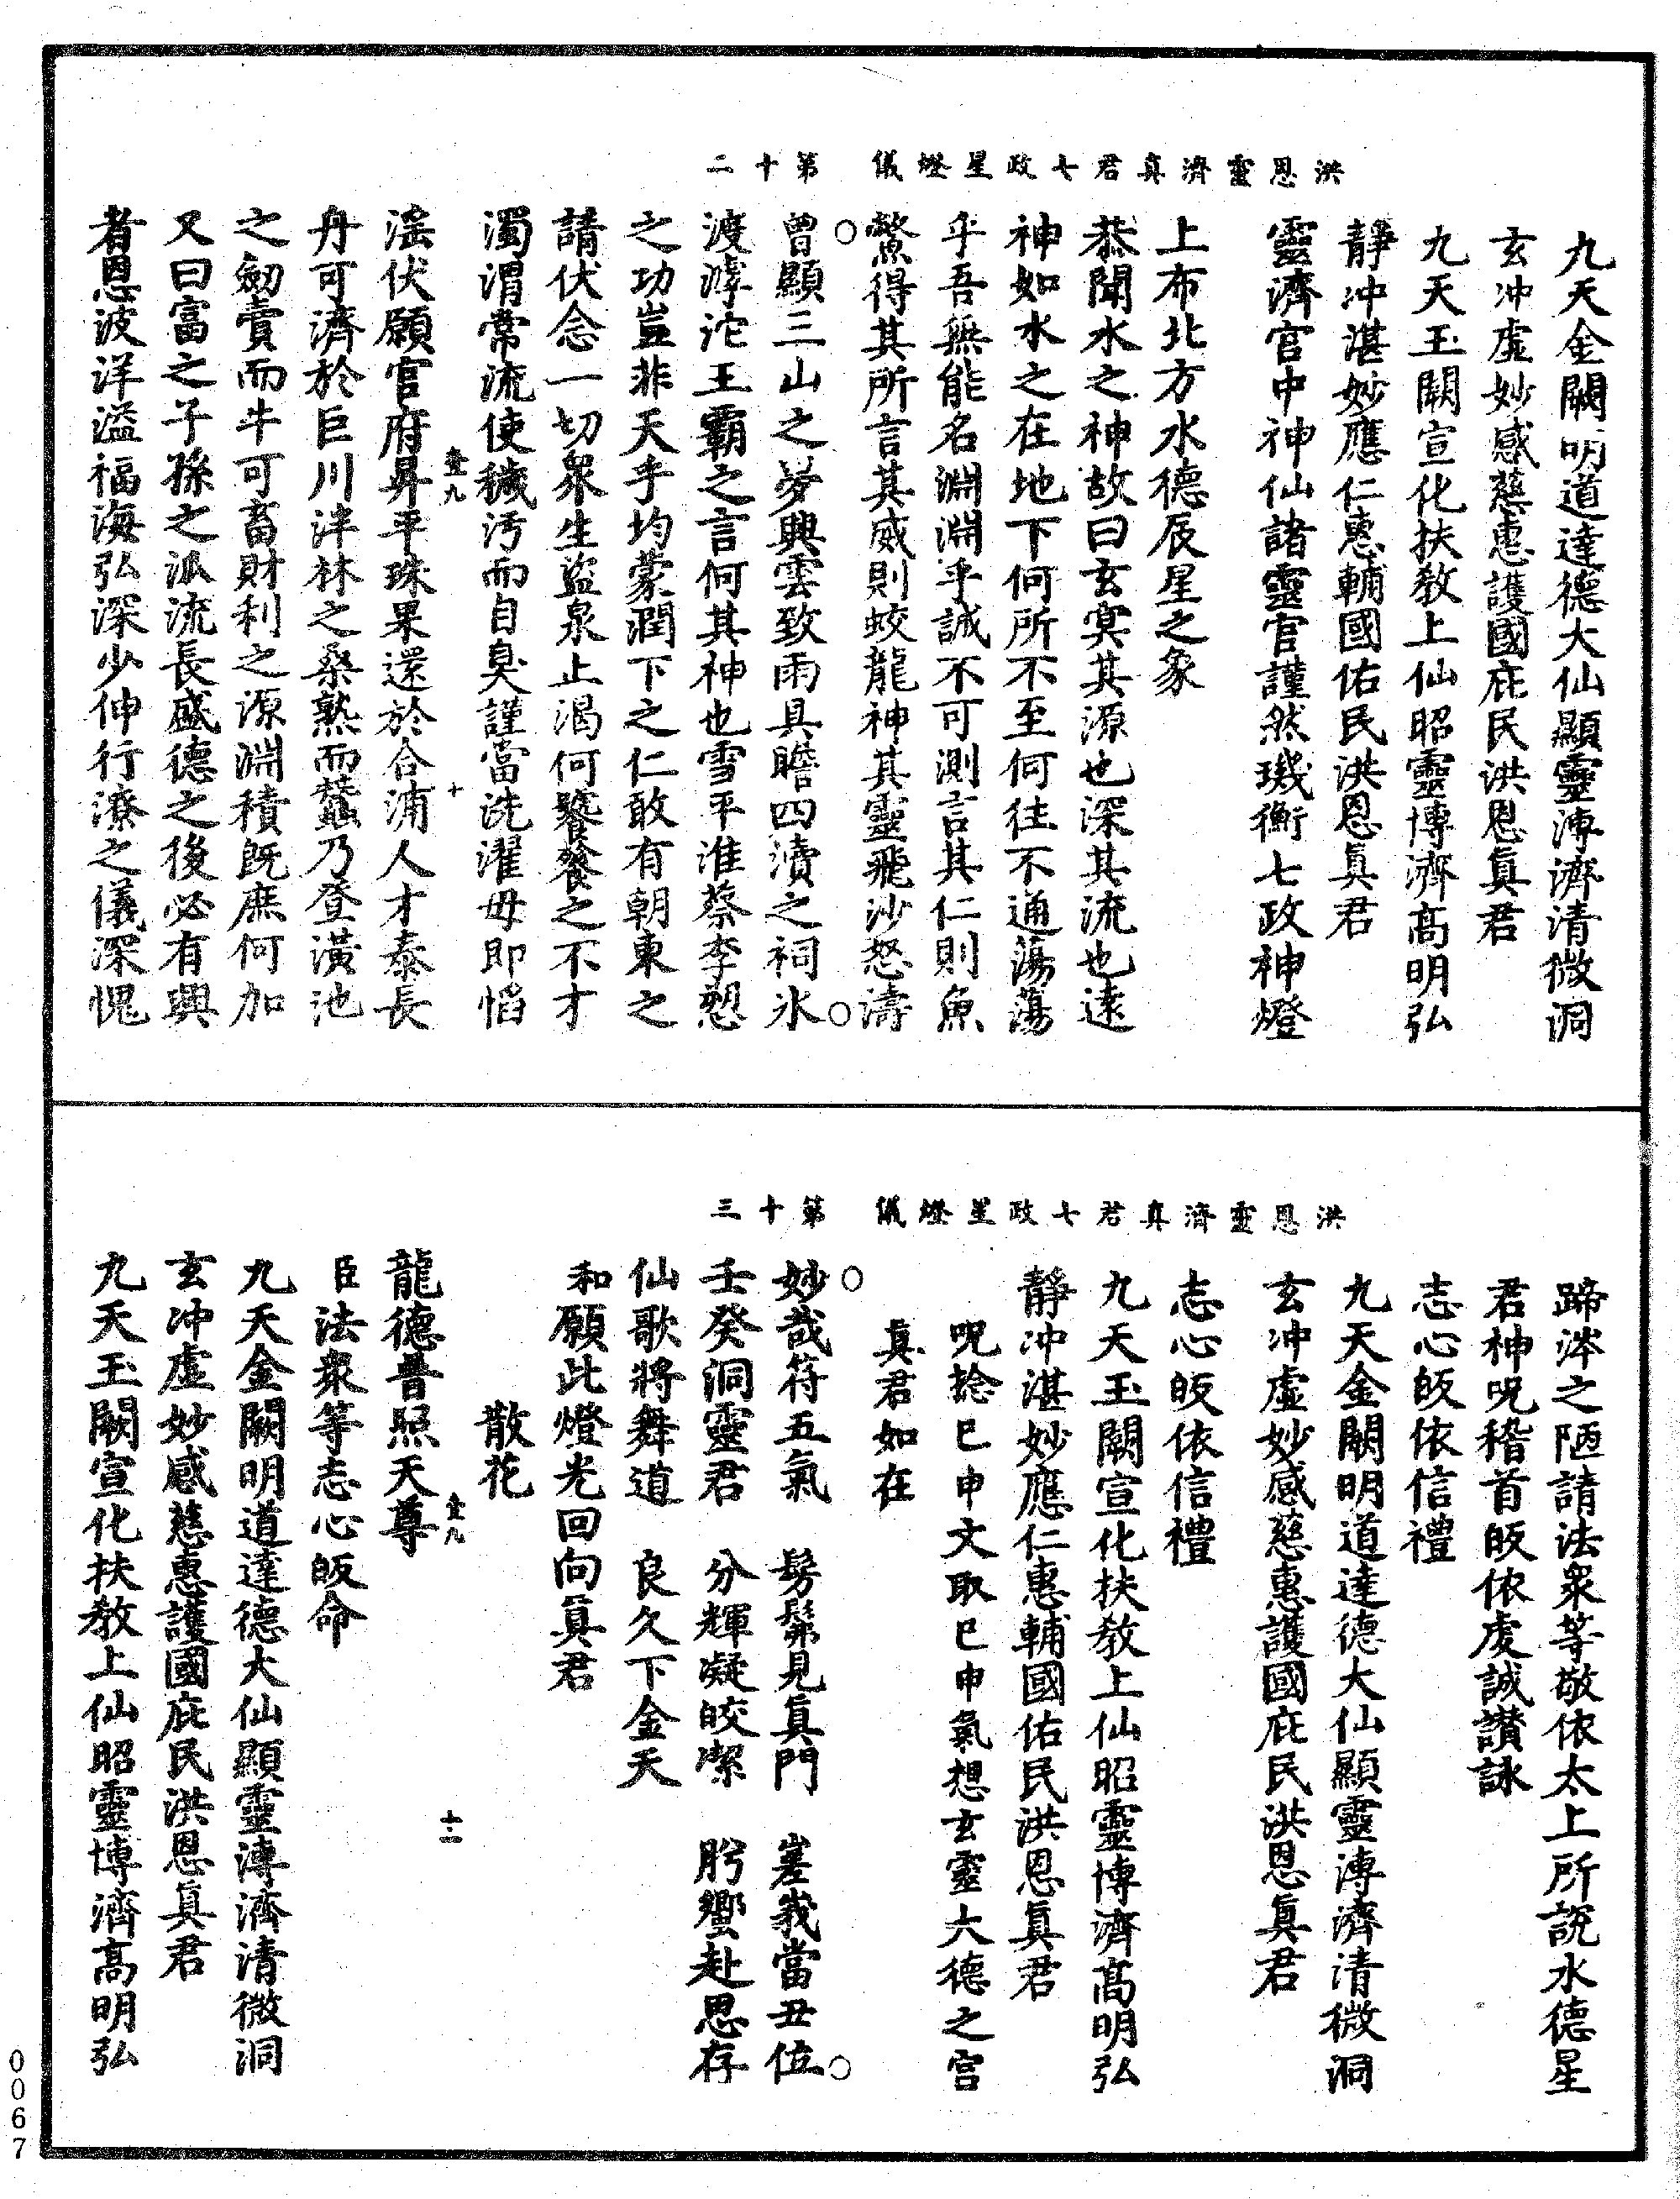 洪恩靈濟真君七政星燈儀　第十二
九天金闕明道達德大仙顯靈溥濟清微洞
玄冲虛妙感慈惠護國庇民洪恩真君
九天玉闕宣化扶教上仙昭靈博濟高明弘
靜冲湛妙應仁惠輔國佑民洪恩真君
靈濟宮中神仙諸靈官謹然璣衡七政神燈
上布北方水德辰星之象
恭聞水之神故曰玄冥其源也深其流也遠
神如水之在地下何所不至何往不通蕩蕩
乎吾無能名淵淵乎誠不可測言其仁則魚
鱉得其所言其威則蛟龍神其靈飛沙怒濤
曾顯三山之夢興雲致雨具瞻四瀆之祠氷
渡滹沱王霸之言何其神也雪平淮蔡李愬
之功豈非天乎均蒙潤下之仁敢有朝東之
請伏念一切衆生盜泉止渴何饕餮之不才
濁渭常流使穢污而自臭謹當洗濯毋即慆
滛伏願官府昇平珠果還於合浦人才泰長
壹九
十
舟可濟於巨川泮林之桑熟而蠶乃登潢池
之劒賣而牛可畜財利之源淵積既庶何加
又曰富之子孫之派流長盛德之後必有興
者恩波洋溢福海弘深少伸行潦之儀深愧
洪恩靈濟真君七政星燈儀　第十三
蹄涔之陋請法衆等敬依太上所說水德星
君神呪稽首皈依虔誠讚詠
志心皈依信禮
九天金闕明道達德大仙顯靈溥濟清微洞
玄冲虛妙感慈惠護國庇民洪恩真君
志心皈依信禮
九天玉闕宣化扶教上仙昭靈博濟高明弘
靜冲湛妙應仁惠輔國佑民洪恩真君
呪捻巳申文取巳申氣想玄靈大德之宮
真君如在
妙哉符五氣　髣髴見真門　嵳峩當丑位
壬癸洞靈君　分輝凝皎潔　肹蠁赴思存
仙歌將舞道　良久下金天
和願此燈光回向真君
散花
龍德普照天尊
壹九
十二
臣法衆等志心皈命
九天金闕明道達德大仙顯靈溥濟清微洞
玄冲虛妙感慈惠護國庇民洪恩真君
九天玉闕宣化扶教上仙昭靈博濟高明弘
0067